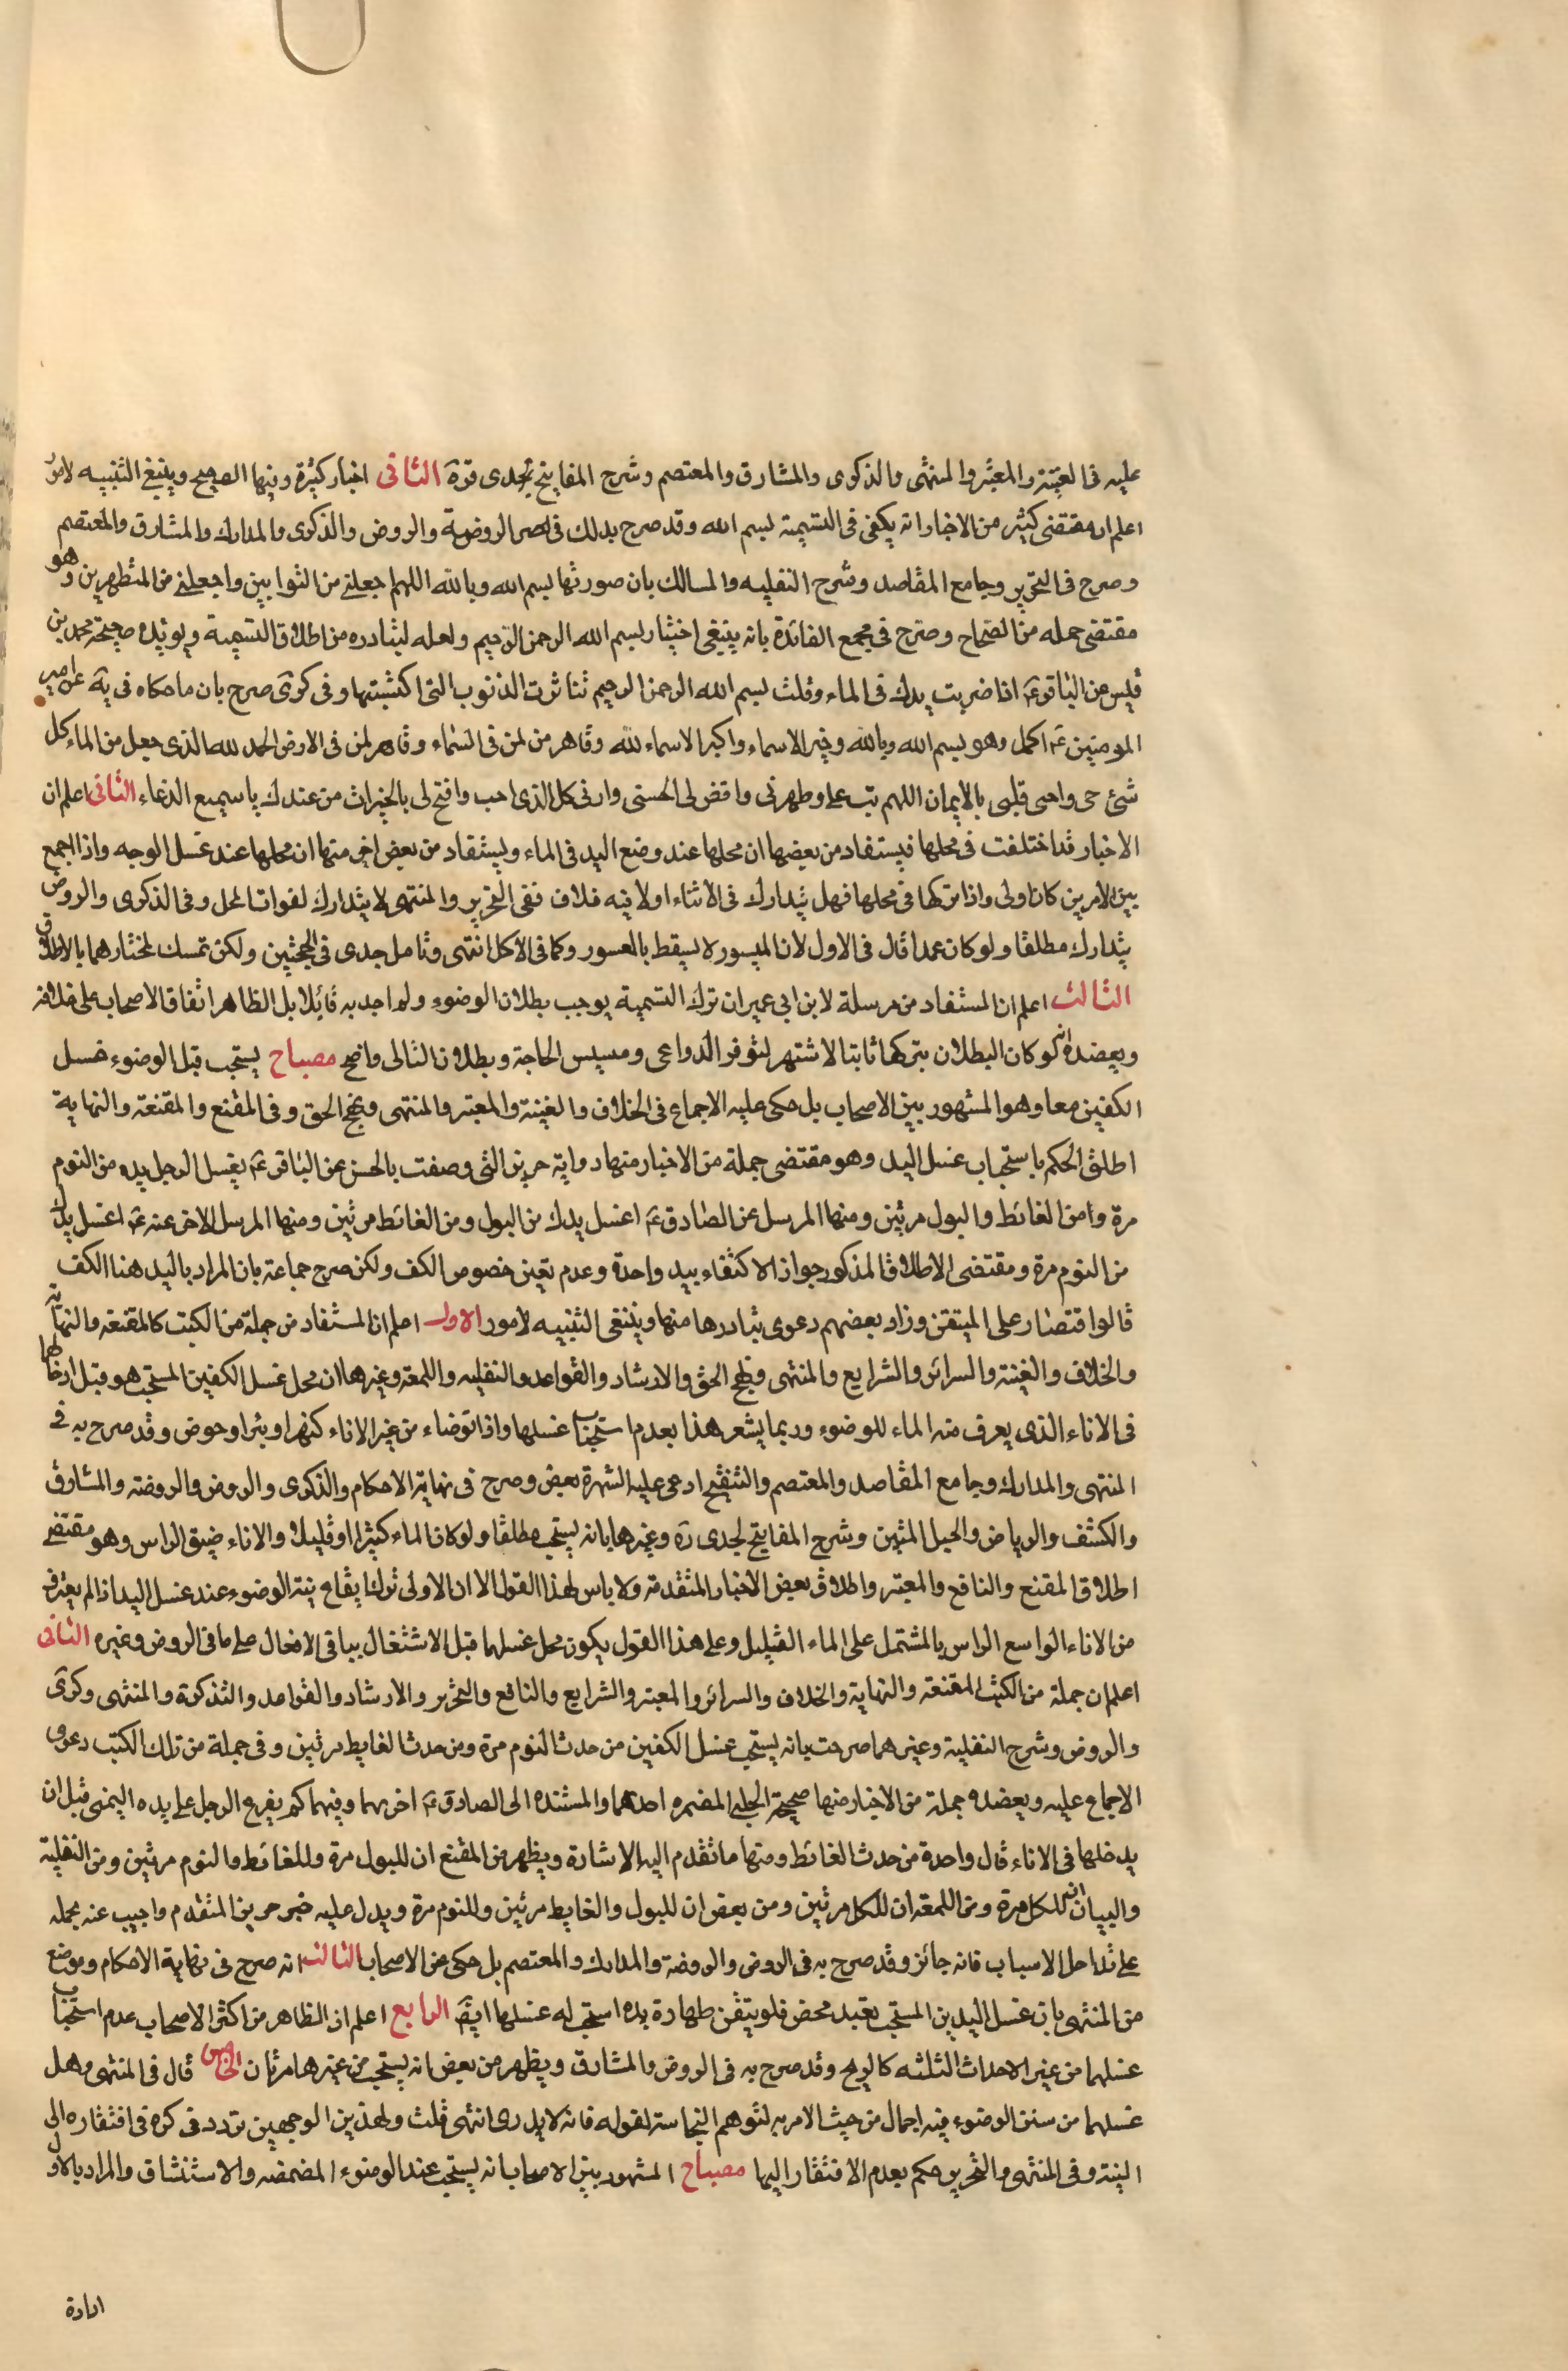 عليه فى الغنية والمعتبر والمنتهى والذكرى والمشارق والمعتصم وشرح المفاتيح لجدى قدة الثانى اخبار كثيرة وفيها الصحيح وينبغى التنبيه لامور
اعلم ان مقتضى كثير من الاخبار انه يكفى فى التسمية بسم الله وقد صرح بذلك فى الروضة والروض والذكرى والمدارك والمشارق والمعتصم
وصرح فى التحرير وجامع المقاصد وشرح النفليه والمسالك بان صورتها بسم الله وبالله اللهم اجعلنى من التوابين واجعلنى من المتطهرين وهو
مقتضى جمله من الصحاح وصرح فى مجمع الفائدة بانه ينبغى اختيار بسم الله الرحمن الرحيم ولعله لتبادره من اطلاق التسمية ويؤيده صحيحة محمد بن
قيس عن الباقر ع اذا ضربت يدك فى الماء وقلت بسم الله الرحمن الرحيم تناثرت الذنوب التى اكتسبتها وفى كرى صرح بان ما حكاه فى يه عن امير
المومنين ع اكمل وهو بسم الله وبالله وخير الاسماء واكبر الاسماء لله وقاهر من لمن فى السماء وقاهر لمن فى الارض الحمد لله الذى جعل من الماء كل
شئ حى واحى قلبى بالايمان اللهم تب على وطهرنى واقض لى الحسنى وارنى كل الذى احب وافتح لى بالخيرات من عندك يا سميع الدعاء الثانى اعلم ان
الاخبار قد اختلفت فى محلها فيستفاد من بعضها ان محلها عند وضع اليد فى الماء ويستفاد من بعض اخر منها ان محلها عند غسل الوجه واذا جمع
بين الامرين كان اولى واذا تركها فى محلها فهل يتدارك فى الاثناء اولا فيه خلاف ففى التحرير والمنتهى لا يتدارك لفوات المحل وفى الذكرى والروض
يتدارك مطلقا ولو كان عمدا قال فى الاول لان الميسور لا يسقط بالعسور وكما فى الاكل انتهى وتامل جدى فى الحجتين ولكن تمسك لمختارهما بالاطلاق
الثالث اعلم ان المستفاد من مرسلة لابن ابى عمير ان ترك التسمية يوجب بطلان الوضوء ولم اجد به قائلا بل الظاهر اتفاق الاصحاب على خلافه
ويعضده انه لو كان البطلان بتركها ثابتا لاشتهر لتوفر الدواعى ومسيس الحاجة وبطلان التالى واضح مصباح يستحب قبل الوضوء غسل
الكفين معا وهو المشهور بين الاصحاب بل حكى عليه الاجماع فى الخلاف والغينة والمعتبر والمنتهى ونهج الحق وفى المقنع والمقنعة والنهاية
اطلق الحكم باستحباب غسل اليد وهو مقتضى جملة من الاخبار منها رواية حريز التى وصفت بالحسن عن الباقر ع يغسل الرجل يده من النوم
مرة وامن الغائط والبول مرتين ومنها المرسل عن الصادق ع اغسل يدك من البول ومن الغائط مرتين ومنها المرسل الاخر عنه ع اغسل يدك
من النوم مرة ومقتضى الاطلاق المذكور جواز الاكتفاء بيد واحدة وعدم تعين خصوص الكف ولكن صرح جماعة بان المراد باليد هنا الكف
قالوا اقتصار على المتيقن وزاد بعضهم دعوى تبادرها منها وينبغى التنبيه لامور الاول اعلم ان المستفاد من جملة من الكتب كالمقنعه والنهاية
والخلاف والغينة والسرائر والشرايع والمنتهى ونهج الحق والارشاد والقواعد والنفليه واللمعة وغيرها ان محل غسل الكفين المستحب هو قبل ادخالها
فى الاناء الذى يعرف منه الماء للوضوء وربما يشعر هذا بعدم استحباب غسلها واذا توضاء من غير الاناء كنهر او بئر او حوض وقد صرح به فى
المنتهى والمدارك وجامع المقاصد والمعتصم والتنقيح ادعى عليه الشهرة بعض وصرح فى نهاية الاحكام والذكرى والروض والروضه والمشارق
والكشف والرياض والحبل المتين وشرح المفاتيح لجدى ره وغيرها بانه يستحب مطلقا ولو كان الماء كثيرا او قليلا والاناء ضيق الراس وهو مقتضى
اطلاق المقنع والنافع والمعتبر واطلاق بعض الاخبار المتقدمة ولا باس لهذا القول الا ان الاولى ترك ايقاع نية الوضوء عند غسل اليد اذا لم يغترف
من الاناء الواسع الراس بالمشتمل على الماء القليل وعلى هذا القول يكون محل غسلهما قبل الاشتغال بباقى الافعال على ما فى الروض وغيره الثانى
اعلم ان جملة من الكتب المقنعة والنهاية والخلاف والسرائر والمعتبر والشرايع والنافع والتحرير والارشاد والقواعد والتذكرة والمنتهى وكرى
والروض وشرح النفلية وغيرهما صرحت بانه يستحب غسل الكفين من حدث النوم مرة ومن حدث الغايط مرتين وفى جملة من تلك الكتب دعوى
الاجماع عليه ويعضده جملة من الاخبار منها صحيحة الحلبى المضمره احدهما والمسنده الى الصادق ع اخريهما وفيهما كم يفرغ الرجل على يده اليمنى قبل ان
يدخلها فى الاناء قال واحدة من حدث الغائط ومنها ما تقدم اليه الاشارة ويظهر من المقنع ان للبول مرة وللغائط والنوم مرتين ومن النفلية
والبيان انه للكل مرة ومن اللمعة ان للكل مرتين ومن بعض ان للبول والغايط مرتين وللنوم مرة ويدل عليه خبر حريز المتقدم واجيب عنه بحمله
على تداخل الاسباب فانه جائز وقد صرح به فى الروض والروضة والمدارك والمعتصم بل حكى عن الاصحاب الثالث انه صرح فى نهاية الاحكام وموضع
من المنتهى بان غسل اليدين المستحب تعبد محض فلو تيقن طهارة يده استحب له غسلها ايضا الرابع اعلم ان الظاهر من اكثر الاصحاب عدم استحباب
غسلهما من غير الاحداث الثلثه كالريح وقد صرح به فى الروض والمشارق ويظهر من بعض انه يستحب من غيرها مرتان الخامس قال فى المنتهى وهل
غسلهما من سنن الوضوء فيه اجمال من حيث الامر به لتوهم النجاسة لقوله فانه لا يدرى انتهى قلت ولهذين الوجهين تردد فى كره فى افتقاره الى
النية وفى المنتهى والتحرير حكم بعدم الافتقار اليها مصباح المشهور بين الاصحاب انه يستحب عند الوضوء المضمضه والاستنشاق والمراد بالاول
ادارة